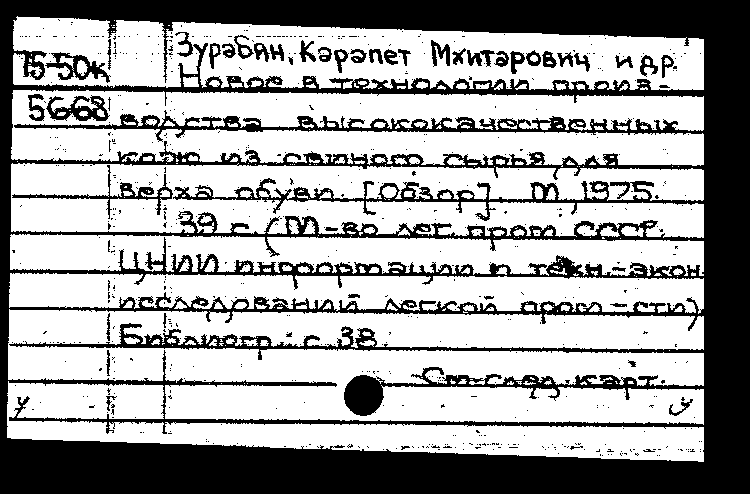 Зурабян, Карапет Мхитарович и др.
75-50к
Новое в технологии произ-
5668
водства высококачественных
кож из свиного сырья для
верха обуви. [Обзор]. М, 1975.
39 с. (М-во лег. пром СССР.
ЦНИИ информации и техн.-экон.
исследований легкой пром-сти).
Библиогр.: с. 38.
См. след. карт.
у
у